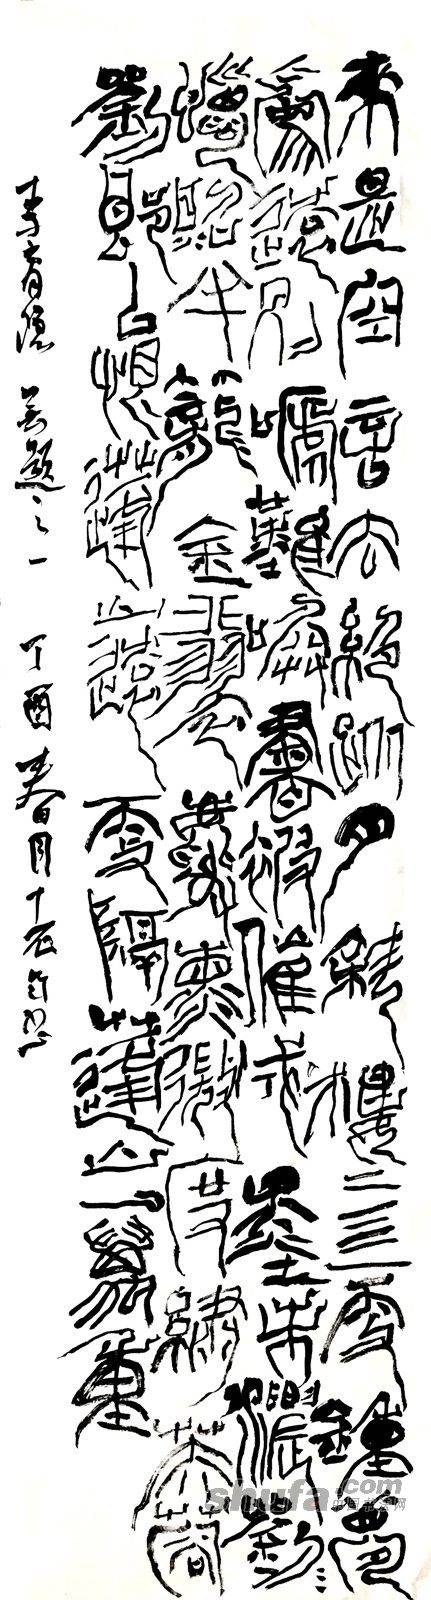 來是空言去絕蹤月斜樓上五更鐘夢
為遠別啼難喚書被催成墨未濃劉
蠟照半籠金翡翠麝熏微度繡芙蓉
劉郎已恨蓬山遠更隔蓬山一萬重
李商隱 無題之一 丁酉春月十石
shufa.com